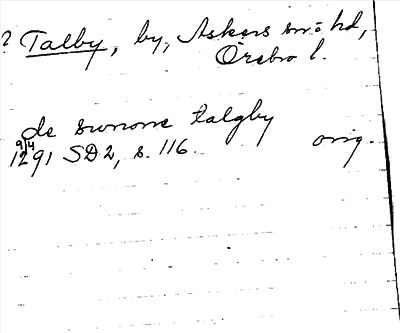 ? Talby, by, Askers sn o hd,
Örebro l.
de swnome talgby
9/4
1291 SD2, s. 116. orig.